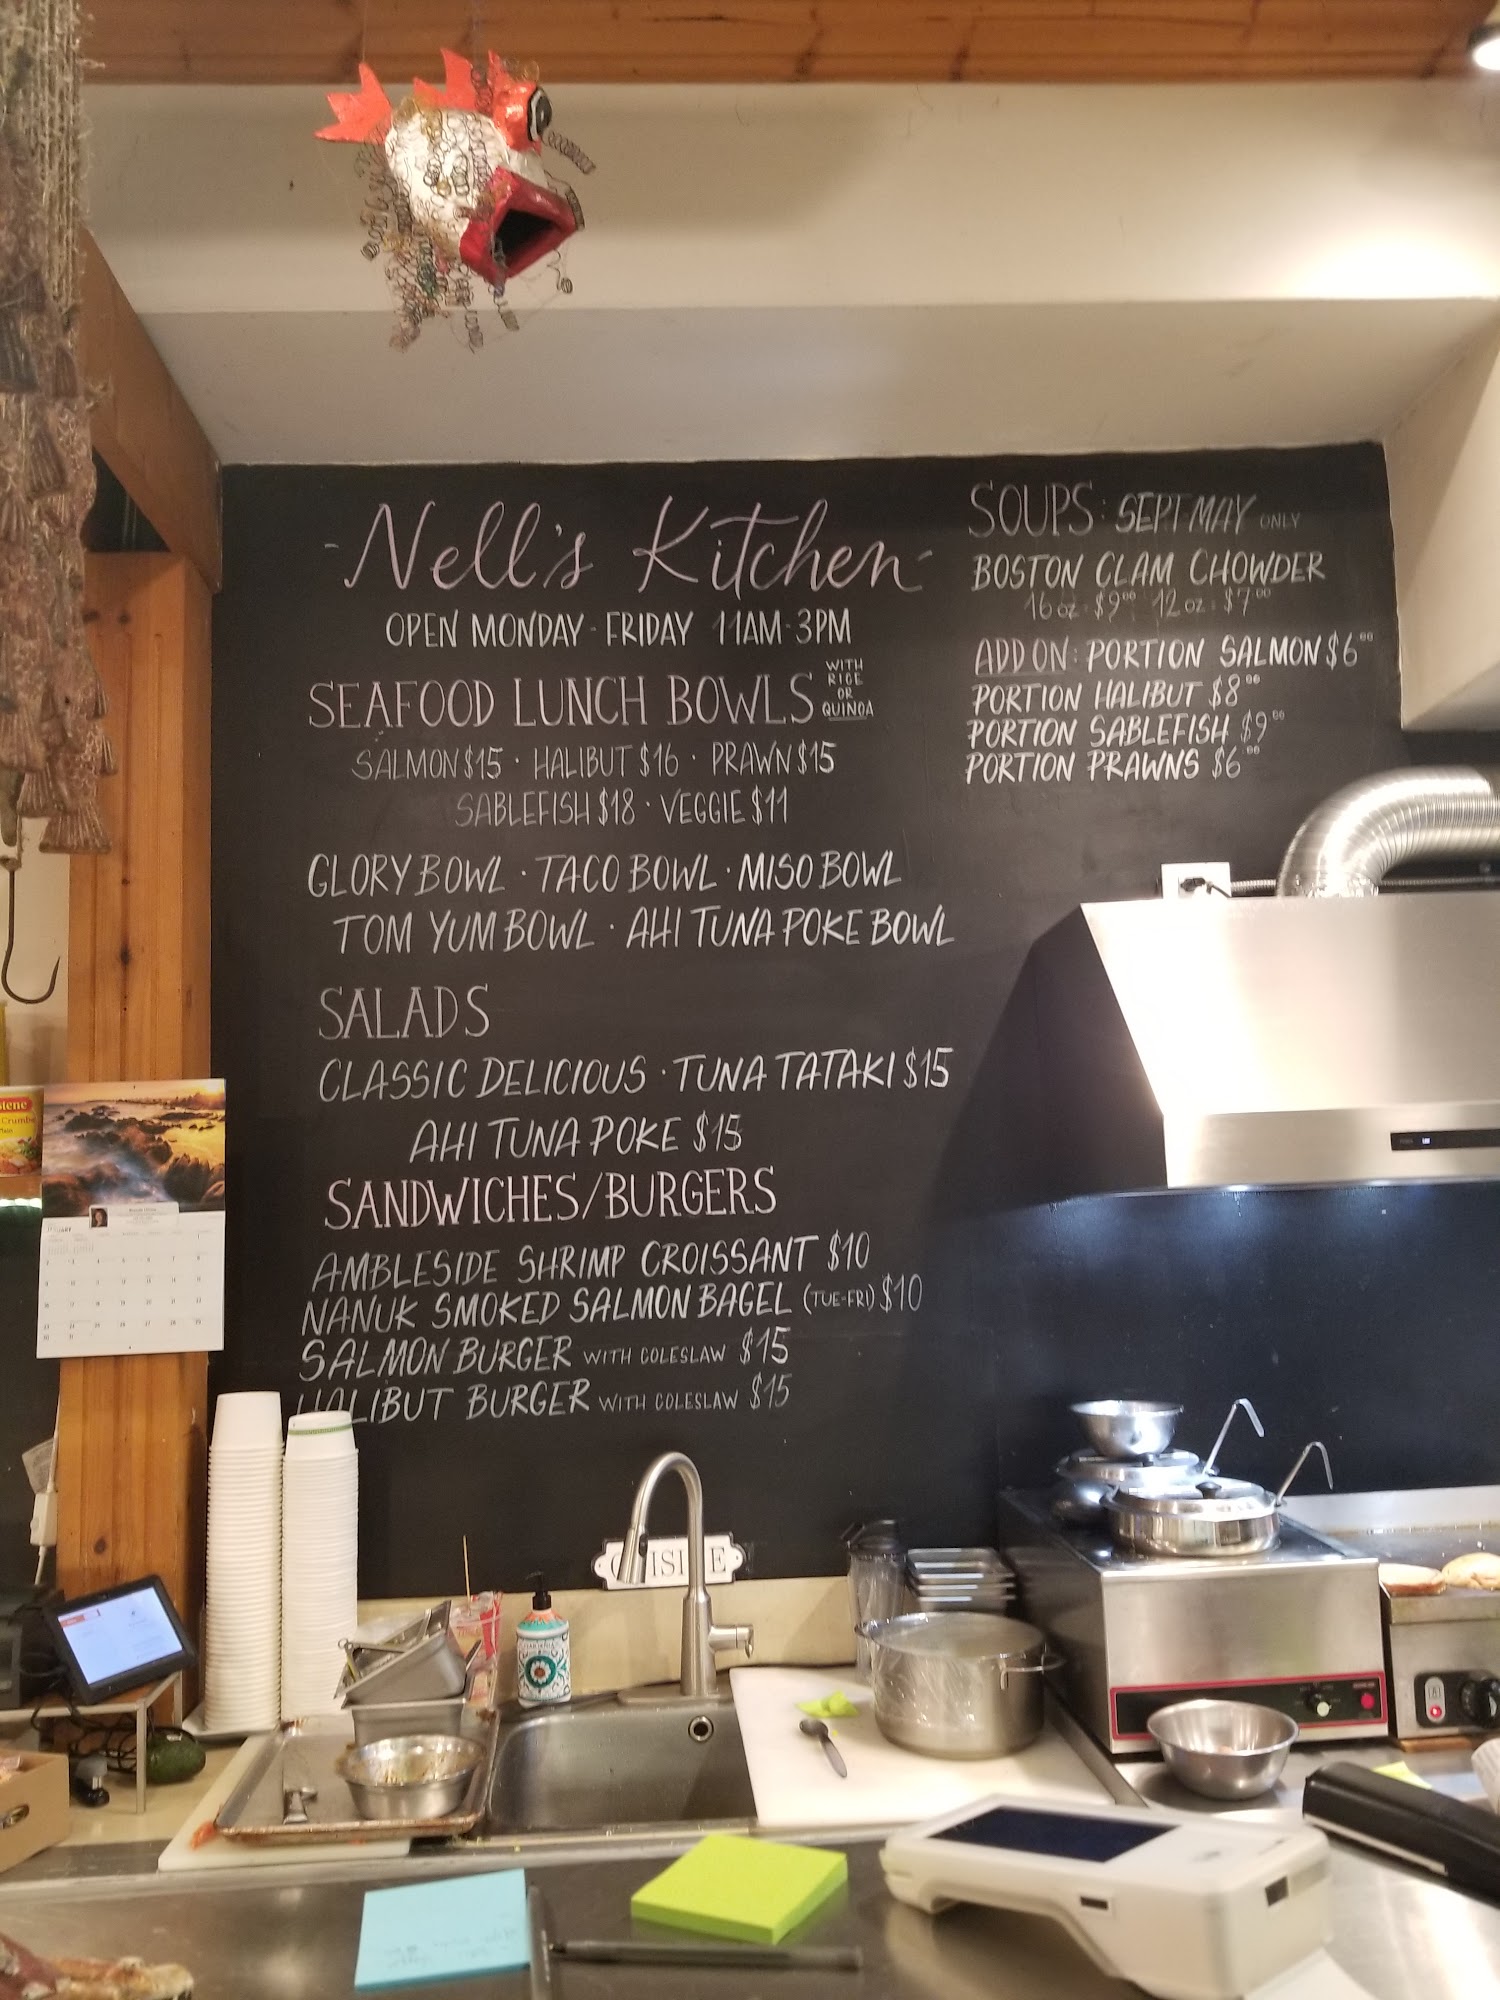 - Nell's Kitchen -
OPEN MONDAY - FRIDAY 11AM-3PM
SEAFOOD LUNCH BOWLS WITH RICE OR QUINOA
SALMON $15 · HALIBUT $16 · PRAWN $15
SABLEFISH $18 · VEGGIE $11
GLORY BOWL · TACO BOWL · MISO BOWL
TOM YUM BOWL · AHI TUNA POKE BOWL
SALADS
CLASSIC DELICIOUS · TUNA TATAKI $15
AHI TUNA POKE $15
SANDWICHES/BURGERS
AMBLESIDE SHRIMP CROISSANT $10
NANUK SMOKED SALMON BAGEL (TUE-FRI) $10
SALMON BURGER WITH COLESLAW $15
HALIBUT BURGER WITH COLESLAW $15
SOUPS: SEPT-MAY ONLY
BOSTON CLAM CHOWDER
16 oz: $9.00 12 oz: $7.00
ADD ON: PORTION SALMON $6.00
PORTION HALIBUT $8.00
PORTION SABLEFISH $9.00
PORTION PRAWNS $6.00